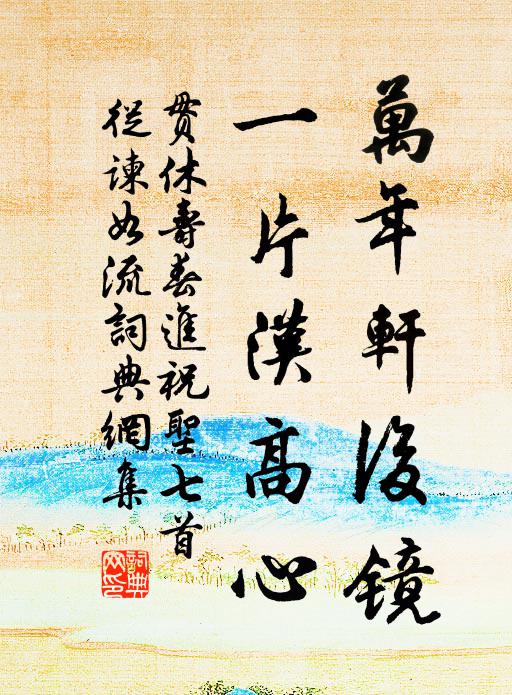 萬年軒後鏡
一片漢高心
貫休壽春進祝聖七首
從諫如流詞典網集
詞典
网印